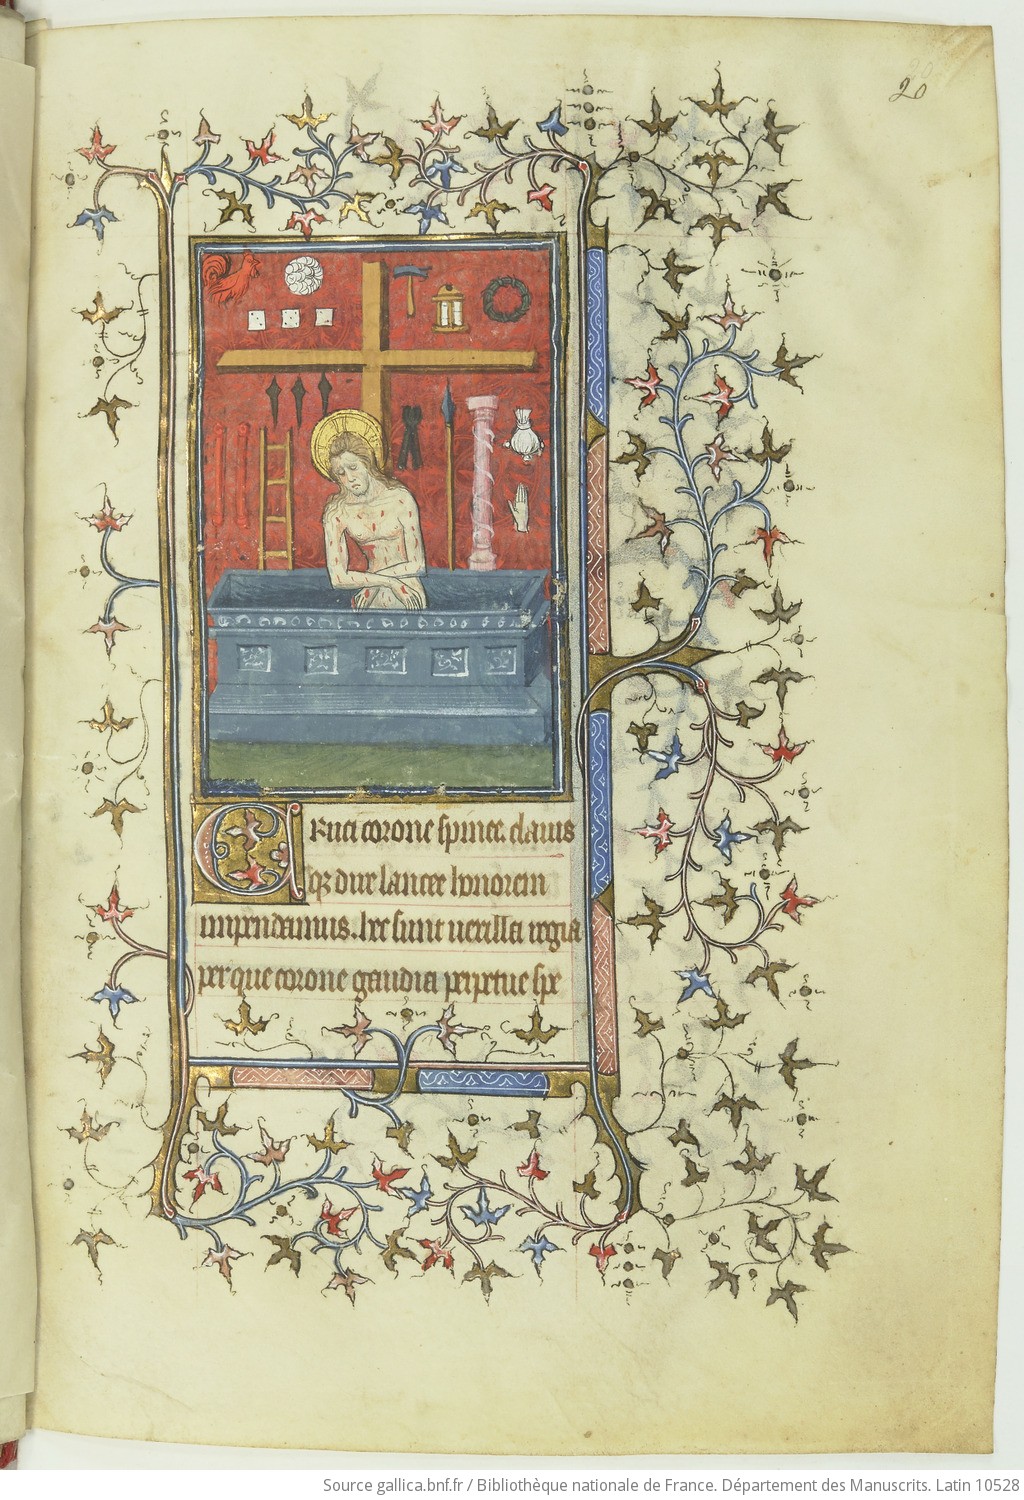 20
Cruci corone spinee. clauis
qȝ dire lancee honorem
impendamus. hec sunt uexilla regia
per que corone gaudia perpetue spe
Source gallica.bnf.fr / Bibliothèque nationale de France. Département des Manuscrits. Latin 10528